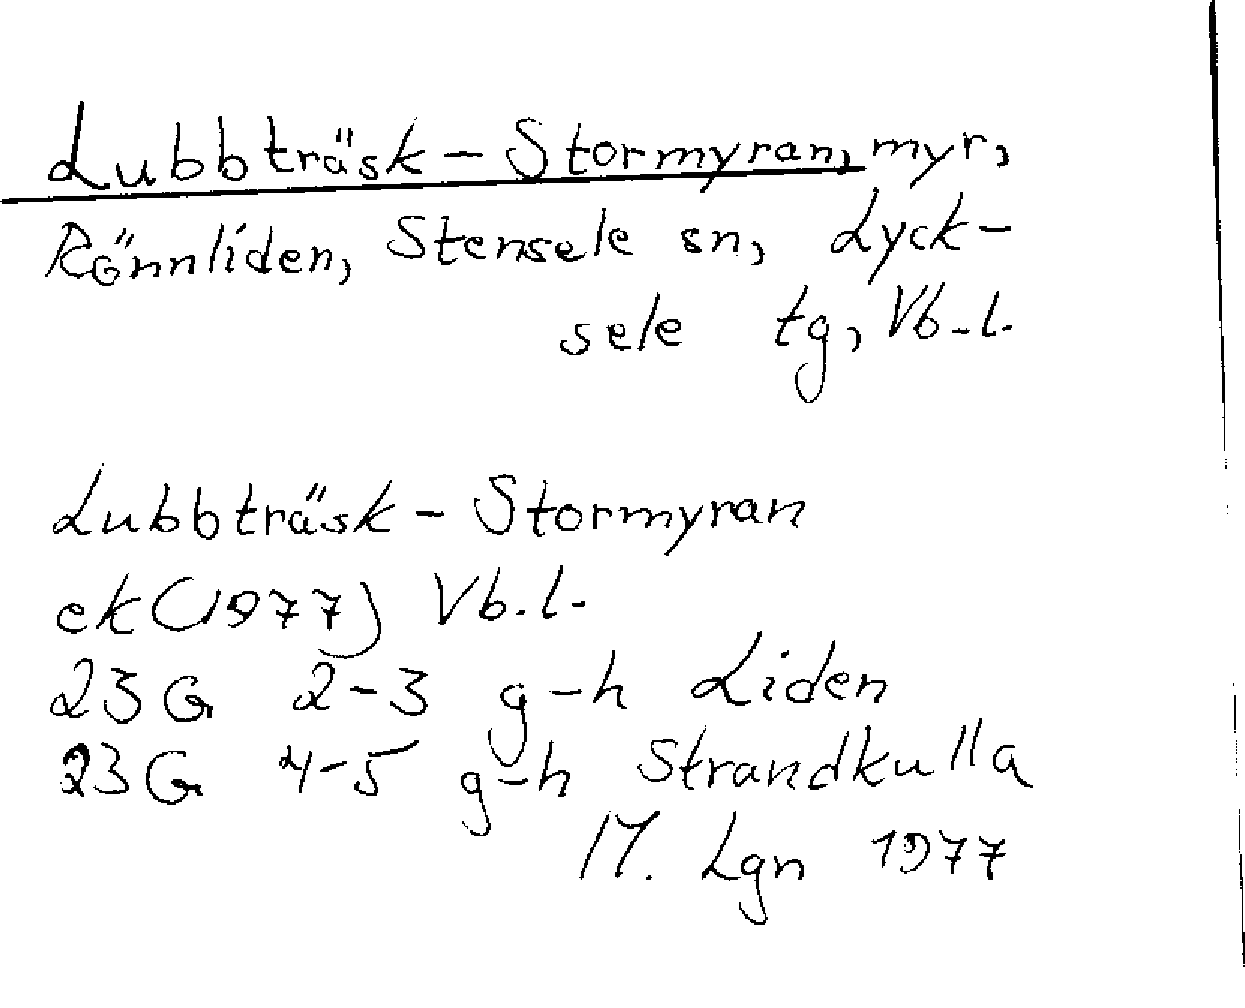 Lubbträsk - Stormyran, myr,
Rönnliden, Stensele sn, Lyck-
sele tg, Vb.l.
Lubbträsk - Stormyran
ek (1977) Vb.l.
23 G 2-3 g-h Liden
23 G 4-5 g-h Strandkulla
M. Lgn 1977